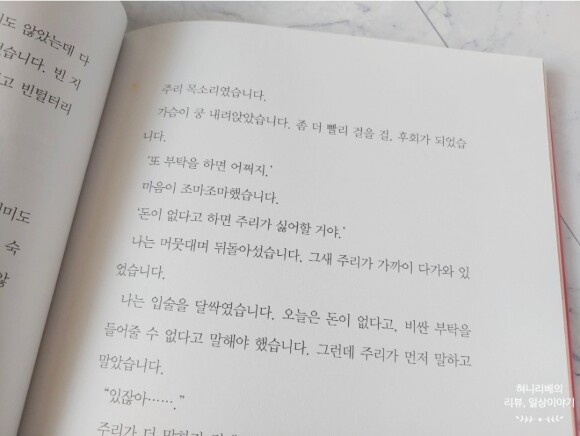 도 않았는데 다
습니다. 빈 지
고 빈털터리
미도
숙
않
주리 목소리였습니다.
가슴이 쿵 내려앉았습니다. 좀 더 빨리 걸을 걸. 후회가 되었습
니다.
'또 부탁을 하면 어쩌지.'
마음이 조마조마했습니다.
'돈이 없다고 하면 주리가 싫어할 거야.'
나는 머뭇대며 뒤돌아섰습니다. 그새 주리가 가까이 다가와 있
었습니다.
나는 입술을 달싹였습니다. 오늘은 돈이 없다고. 비싼 부탁을
들어줄 수 없다고 말해야 했습니다. 그런데 주리가 먼저 말하고
말았습니다.
"있잖아……."
주리가 더 말하기
혀니리베의
리뷰, 일상이야기